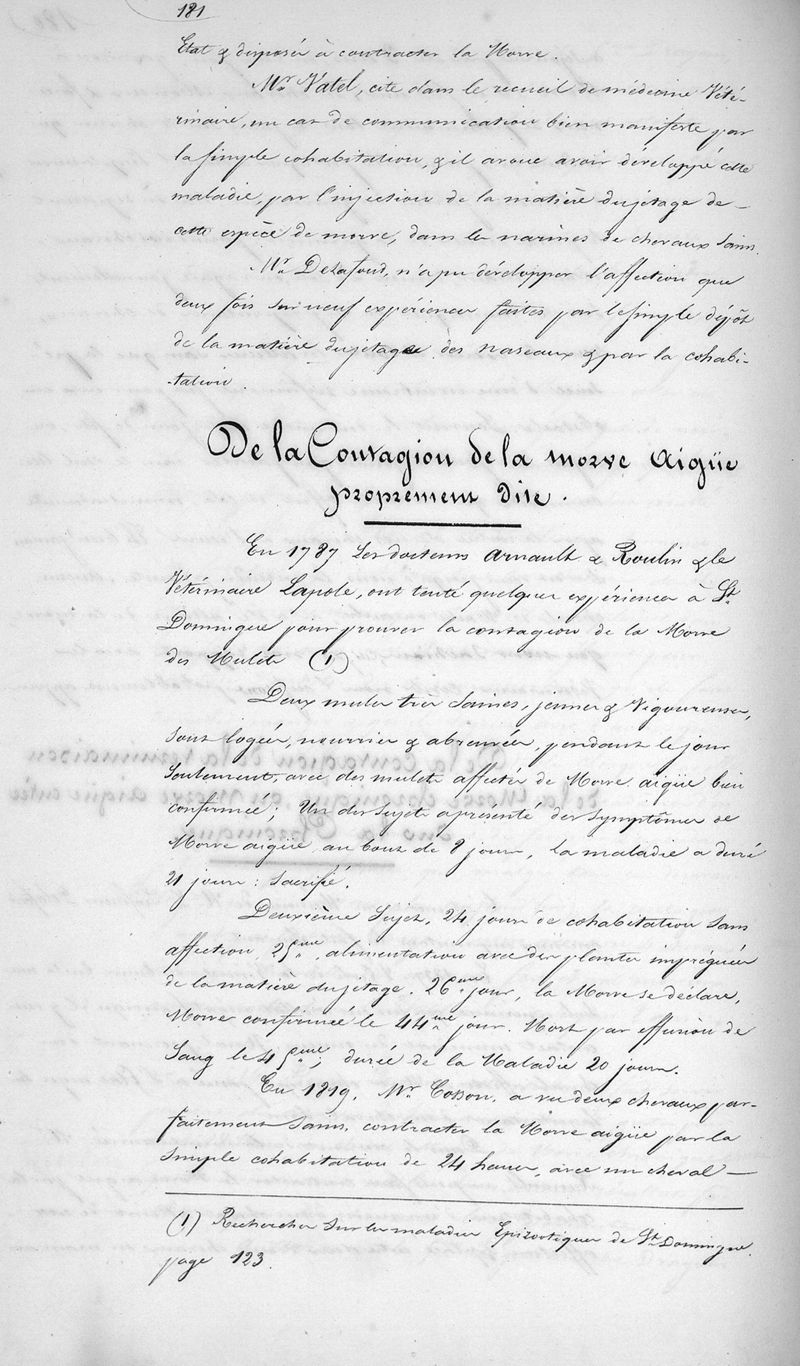 181
Etat & disposés à contracter la Morve.
Mr. Vatel, cite dans le recueil de médecine Vété-
rinaire, un cas de communication bien manifeste par
la simple cohabitation, & il avoue avoir développé cette
maladie, par l'injection de la matière du jetage de —
cette espèce de morve, dans les narines de chevaux sains.
Mr. Delafoud, n'a pu développer l'affection que
deux fois sur neuf expériences faites par le simple dépôt
de la matière du jetage des naseaux & par la cohabi-
-tation.
De la Contagion de la morve Aigüe
proprement dite.
En 1787 Les docteurs Arnault & Roulin & le
Vétérinaire Lapole, ont tenté quelques expériences à St.
Domingue pour prouver la contagion de la Morve
des Mulets (1)
Deux mules très Saines, jeunes & Vigoureuses,
sont logées, nourries & abreuvées, pendant le jour
Seulement, avec des mulets affectés de Morve aigüe bien
confirmée; Un des sujets a présenté des symptômes de
Morve aigüe au bout de 9 jours, la maladie a duré
21 jours: Sacrifié.
Deuxième Sujet, 24 jours de cohabitation sans
affection, 25ème, alimentation avec des plantes imprégnées
de la matière du jetage. 26ème jour, la Morve se déclare,
Morve confirmée le 44ème jour. Mort par effusion de
Sang le 45ème; durée de la Maladie 20 jours.
En 1819, Mr. Cosson, a vu deux chevaux par-
faitement Sains, contracter la Morve aigüe par la
Simple cohabitation de 24 heures, avec un cheval —
(1) Recherches sur les maladies Epizootiques de St. Domingue.
page 123.